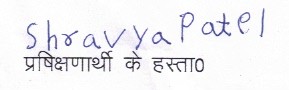 Shravya Patel
प्रषिक्षणार्थी के हस्ता0